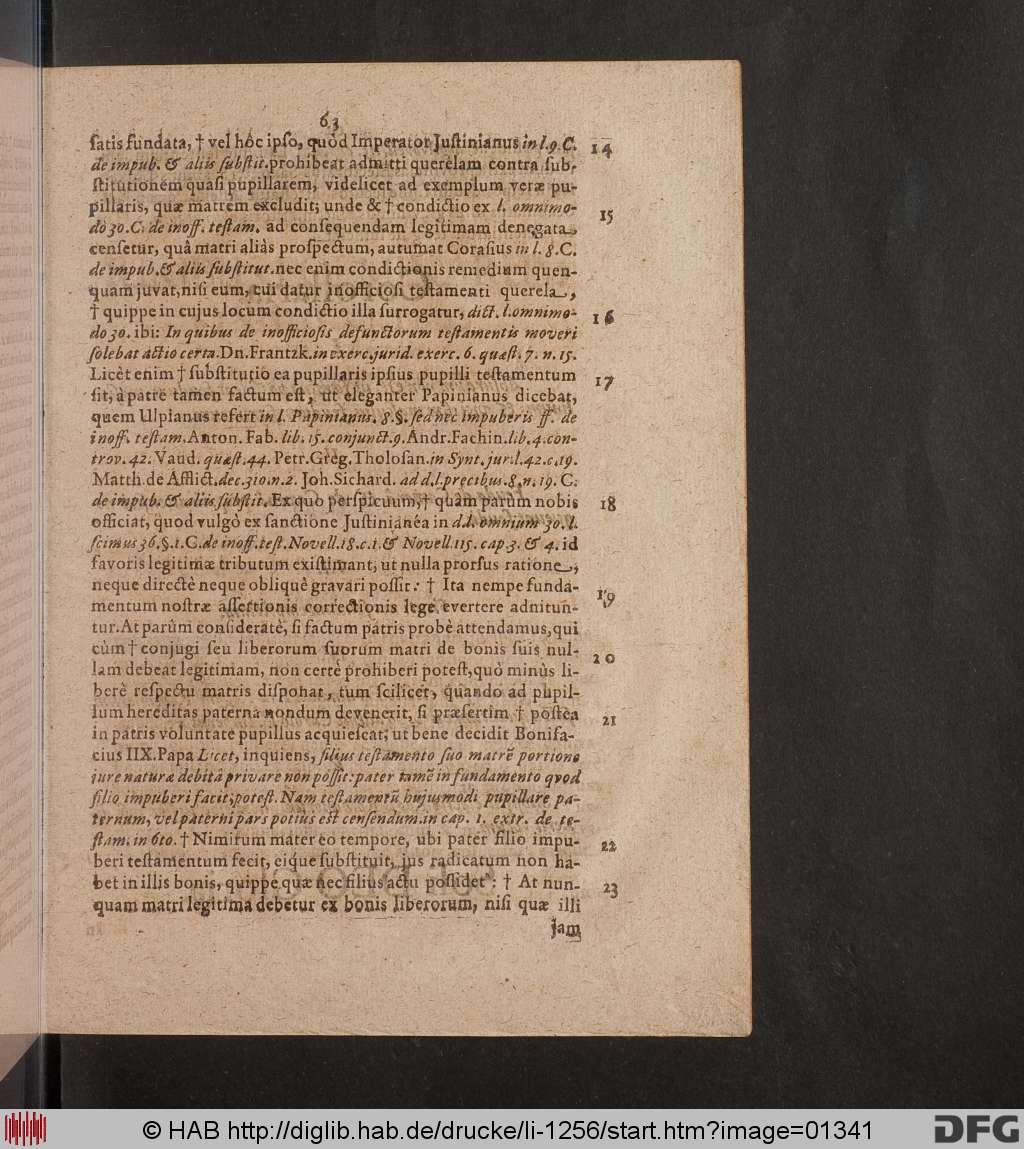 63
ſatis fundata, † vel hôc ipſo, quòd Imperator Juſtinianus in l. 9. C. 14
de impub. & aliis ſubſtit. prohibeat admitti querelam contra ſub-
ſtitutionem quaſi pupillarem, videlicet ad exemplum veræ pu-
pillaris, quæ matrem excludit; unde & † condictio ex l. omnimo- 15
dò 30. C. de inoff. teſtam. ad conſequendam legitimam denegata
cenſetur, quâ matri aliàs proſpectum, autumat Coraſius in l. 8. C.
de impub. & aliis ſubſtitut. nec enim condictionis remedium quen-
quam juvat, niſi eum, cui datur inofficioſi teſtamenti querela,
† quippe in cujus locum condictio illa ſurrogatur, dict. l. omnimo- 16
do 30. ibi: In quibus de inofficioſis defunctorum teſtamentis moveri
ſolebat actio certa. Dn. Frantzk. in exerc. jurid. exerc. 6. quæſt. 7. n. 15.
Licèt enim † ſubſtitutio ea pupillaris ipſius pupilli teſtamentum 17
ſit, à patre tamen factum eſt, ut eleganter Papinianus dicebat,
quem Ulpianus refert in l. Papinianus. 8. §. ſed nec impuberis ff. de
inoff. teſtam. Anton. Fab. lib. 15. conjunct. 9. Andr. Fachin. lib. 4. con-
trov. 42. Vaud. quæſt. 44. Petr. Greg. Tholoſan. in Synt. jur. l. 42. c. 19.
Matth. de Afflict. dec. 310. n. 2. Joh. Sichard. ad d. l. precibus. 8. n. 19. C.
de impub. & aliis ſubſtit. Ex quo perſpicuum, † quàm parùm nobis 18
officiat, quod vulgò ex ſanctione Juſtinianéa in d. l. omnium 30. l.
ſcimus 36. §. 1. C. de inoff. teſt. Novell. 18. c. 1. & Novell. 115. cap 3. & 4. id
favoris legitimæ tributum exiſtimant, ut nulla prorſus ratione,
neque directè neque obliquè gravari poſſit: † Ita nempe funda- 19
mentum noſtræ aſſertionis correctionis lege evertere adnitun-
tur. At parùm conſideratè, ſi factum patris probè attendamus, qui
cùm † conjugi ſeu liberorum ſuorum matri de bonis ſuis nul- 20
lam debeat legitimam, non certè prohiberi poteſt, quò minùs li-
berè reſpectu matris diſponat, tum ſcilicet, quando ad pupil-
lum hereditas paterna nondum devenerit, ſi præſertim † poſtea 21
in patris voluntate pupillus acquieſcat; ut bene decidit Bonifa-
cius IIX. Papa Licet, inquiens, filius teſtamento ſuo matrẽ portione
jure naturæ debitâ privare non poſſit: pater tamẽ in fundamento qvod
filio impuberi facit, poteſt. Nam teſtamentũ hujusmodi pupillare pa-
ternum, vel paterni pars potiùs eſt cenſendum. in cap. 1. extr. de te-
ſtam. in 6to. † Nimirum mater eo tempore, ubi pater filio impu- 22
beri teſtamentum fecit, eique ſubſtituit, jus radicatum non ha-
bet in illis bonis, quippe quæ nec filius actu poſſidet: † At nun- 23
quam matri legitima debetur ex bonis liberorum, niſi quæ illi
jam
© HAB http://diglib.hab.de/drucke/li-1256/start.htm?image=01341
DFG